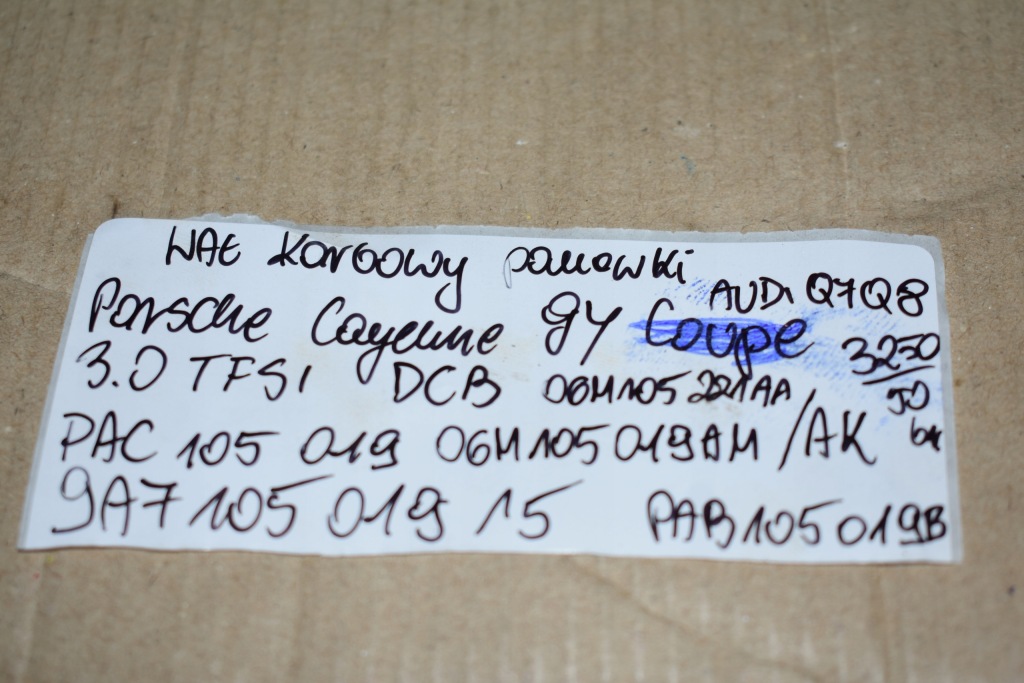 WAŁ Korbowy panewki
AUDI Q7 Q8
Porsche Cayenne 9Y Coupe
3250
3.0 TFSI DCB 06M105221AA
PAC 105 019 06M105019AM / AK
9A7 105 019 15 PAB105019B